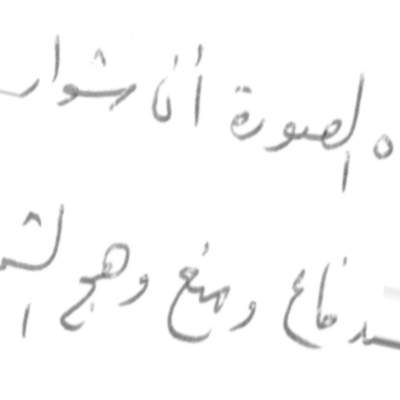 ه الصورة أن شوار
دفاع ومنع وهج الشـ